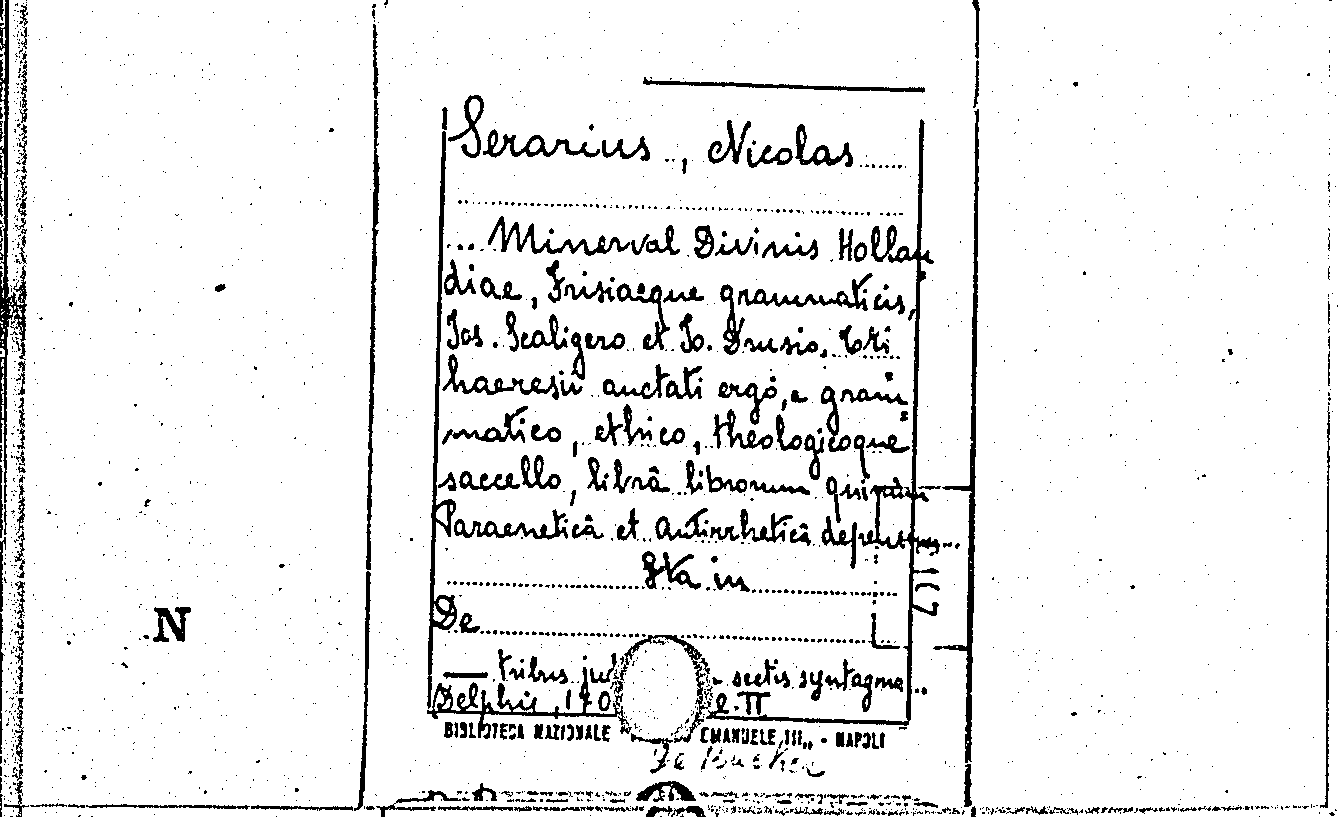 Serarius, Nicolas
... Minerval Divinis Hollan
diae, Frisiaeque grammaticis,
Jos. Scaligero et Jo. Drusio, Tri
haeresii auctati ergó, e gram=
matico, ethico, theologicoque
saccello, librâ librorum quinque
Paraeneticâ et Antirrhetica depensum...
Sta in
De
— tribus jud sectis syntagma...
Delphis, 170 2. II
BIBLIOTECA NAZIONALE EMANUELE III,, - NAPOLI
N